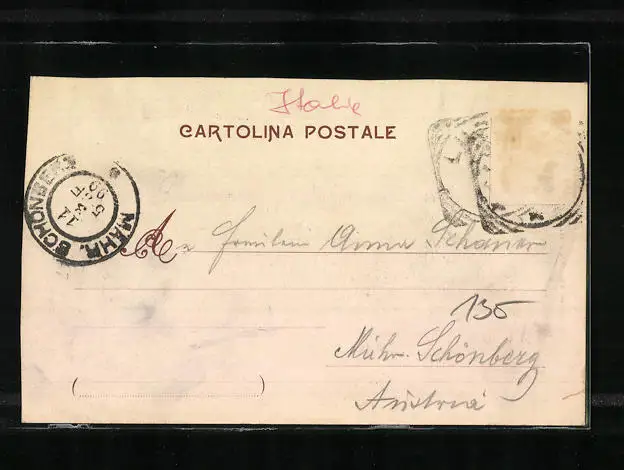 Italie
CARTOLINA POSTALE
MÄHR. SCHÖNBERG
A Fräulein Anna Schauer
135
Mähr. Schönberg
Austria